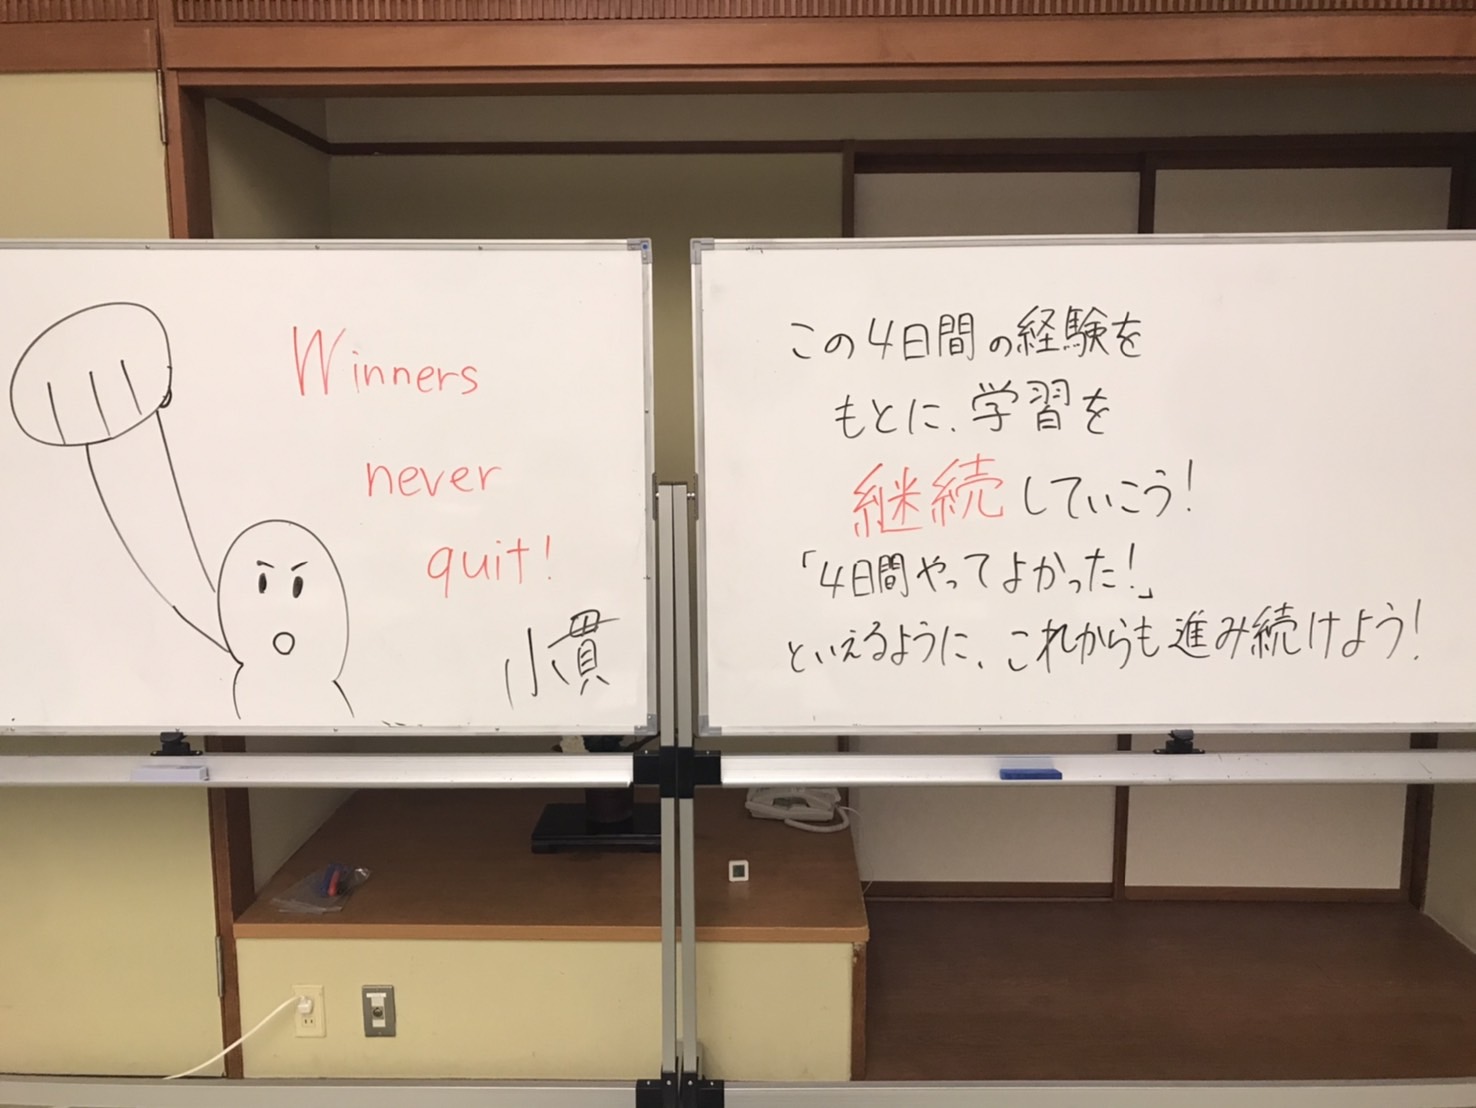 Winners
never
quit!
慣
この4日間の経験を
もとに、学習を
継続していこう!
「4日間やってよかった!」
といえるように、これからも進み続けよう!